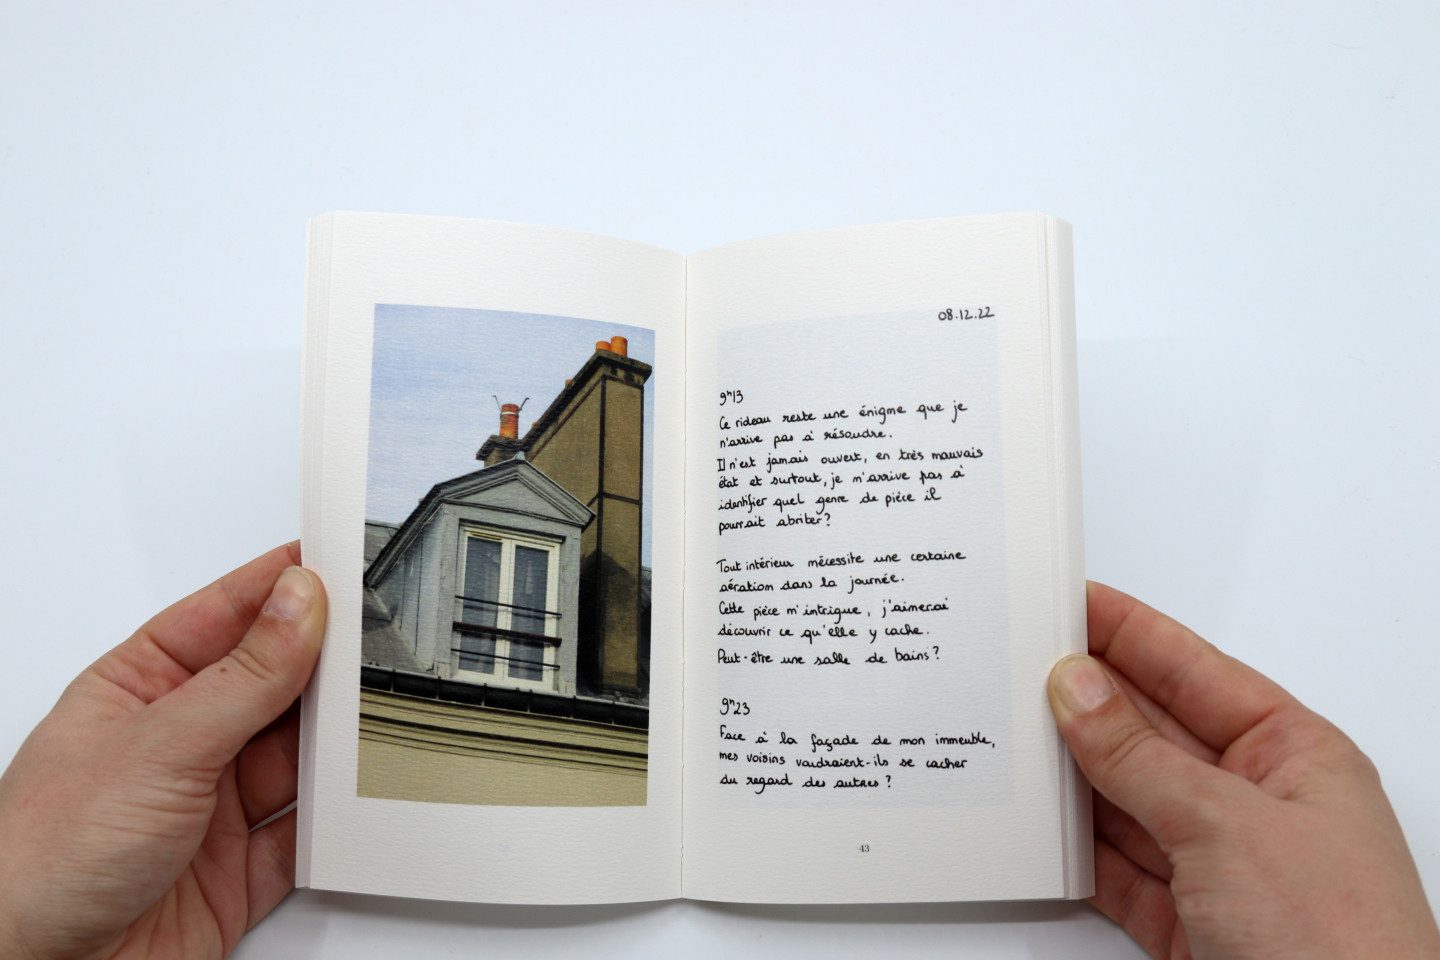 08.12.22
9h13
Ce rideau reste une énigme que je
n'arrive pas à résoudre.
Il n'est jamais ouvert, en très mauvais
état et surtout, je n'arrive pas à
identifier quel genre de pièce il
pourrait abriter?
Tout intérieur nécessite une certaine
aération dans la journée.
Cette pièce m'intrigue, j'aimerai
découvrir ce qu'elle y cache.
Peut-être une salle de bains?
9h23
Face à la façade de mon immeuble,
mes voisins voudraient-ils se cacher
du regard des autres?
43